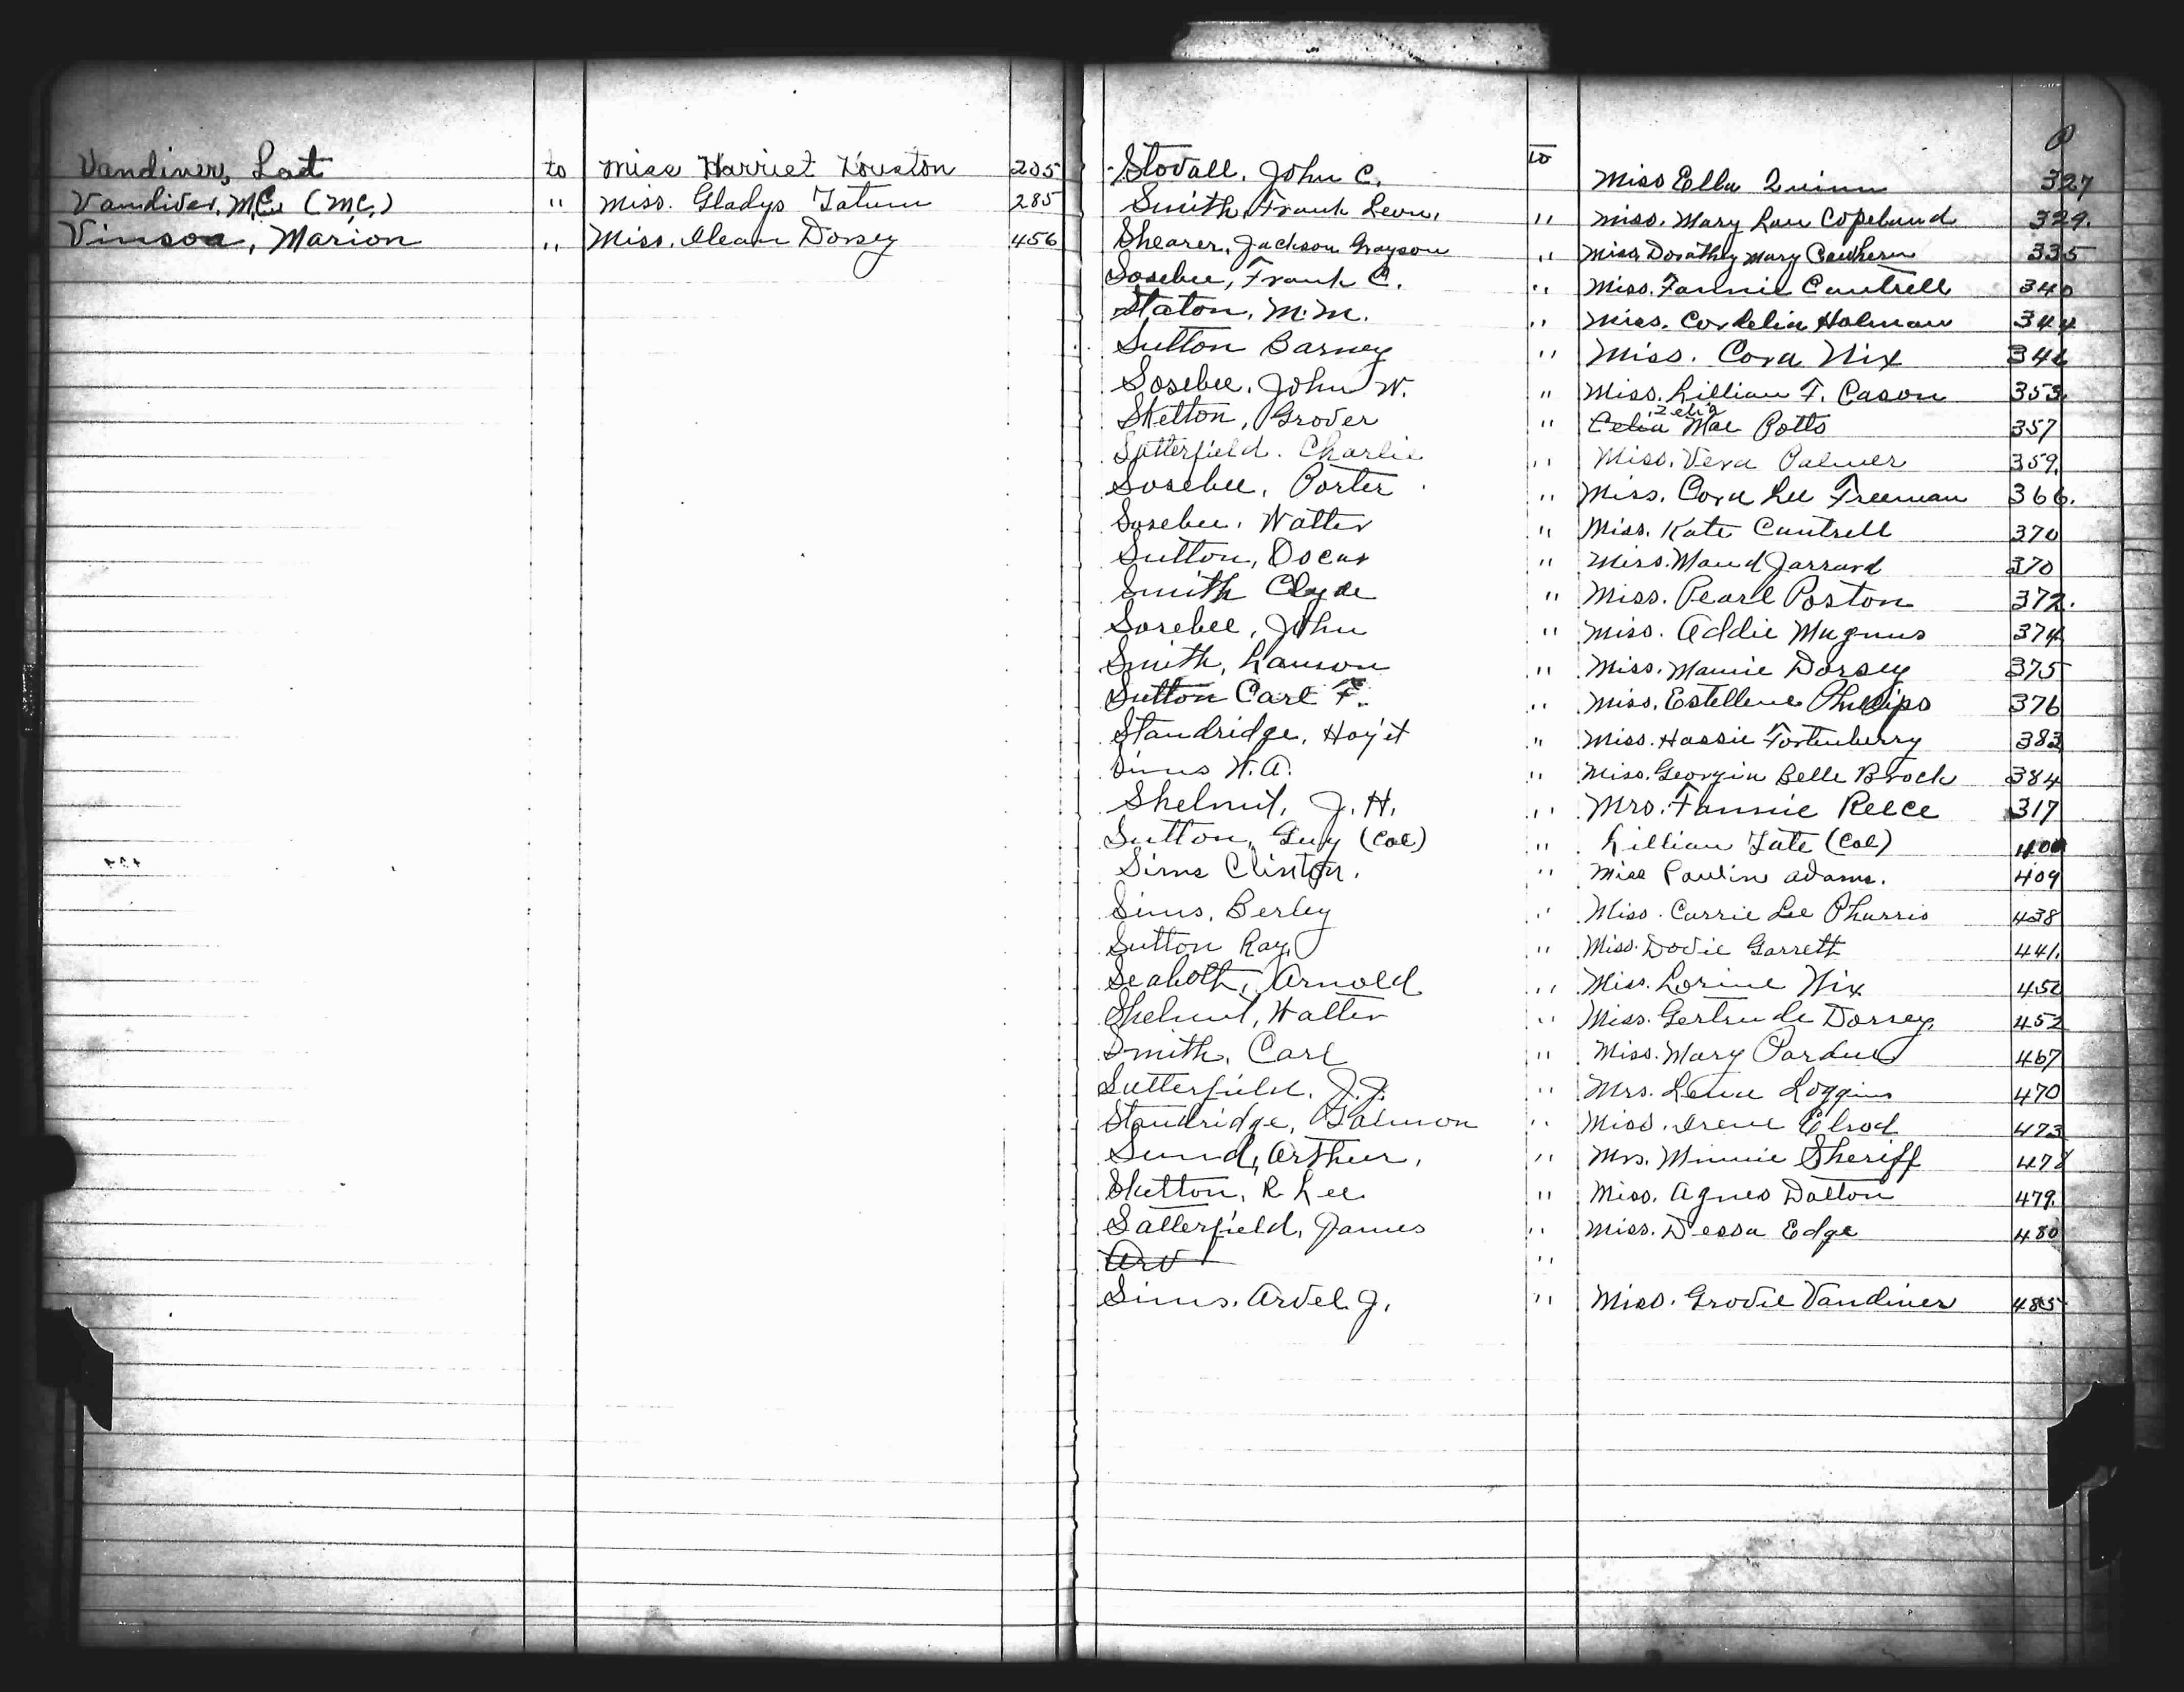 Vandiver, Lat to Miss Harriet Houston 205
Vandiver, Mc (Mc.) " Miss. Gladys Tatum 285
Vinson, Marion " Miss. Clean Dorsey 456
P
Stovall, John C. to Miss Ella Quinn 327
Smith, Frank Leon, " Miss. Mary Lou Copeland 329.
Shearer, Jackson Grayson " Miss Dorathy Mary Cawhern 335
Sosebee, Frank C. " Miss. Fannie Cantrell 340
Staton, M.M. " Miss. Cordelia Holman 344
Sutton Barney " Miss. Cora Nix 346
Sosebee, John W. " Miss. Lillian F. Cason 353
Zelia
Skelton, Grover " Celia Mae Potts 357
Satterfield. Charlie " Miss. Vera Palmer 359.
Sosebee, Porter " Miss. Cora Lee Freeman 366.
Sosebee, Walter " Miss. Kate Cantrell 370
Sutton, Oscar " Miss. Maud Jarrard 370
Smith Clyde " Miss. Pearl Poston 372.
Sosebee, John " Miss. Addie Magnus 374
Smith, Lawson " Miss. Mamie Dorsey 375
Sutton Carl F. " Miss. Estellene Phillips 376
Standridge, Hoyit " Miss. Hassie Fortenberry 383
Sims W.A. " Miss. Georgia Belle Brock 384
Shelnut, J. H. " Mrs. Fannie Reece 317
Sutton, Guy (Col) " Lillian Tate (Col) 400
Sims Clinton. " Miss Paulin Adams. 409
Sims, Berley " Miss. Carrie Lee Pharris 438
Sutton Ray, " Miss. Dovie Garrett 441.
Seabolt, Arnold " Miss. Lorine Nix 450
Shelnut, Walter " Miss. Gertrude Dorsey 452
Smith, Carl " Miss. Mary Pardue 467
Satterfield, J.J. " Mrs. Lena Loggins 470
Standridge, Galmon " Miss. Irene Elrod 473
Sund, Arthur, " Mrs. Minnie Sheriff 478
Skelton, R Lee " Miss. Agnes Dalton 479.
Satterfield, James " Miss. Dessa Edge 480
Arv "
Sims, Arvel J. " Miss. Grovie Vandiver 485